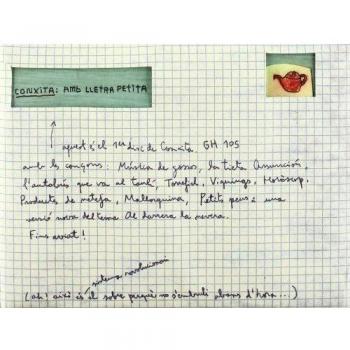 CONXITA: AMB LLETRA PETITA
aquest és el 1er disc de Conxita GH 105
amb les cançons: Música de gossos, la tieta Assumpció,
l'autobús que va al tard, Tonofol, Víquings, Horòscop,
Productes de neteja, Mallorquina, Petits peus i una
versió nova del tema Al darrera la nevera.
Fins aviat!
sistema revolucionari
(ah! així és el sobre perquè no s'embruti abans d'hora...)